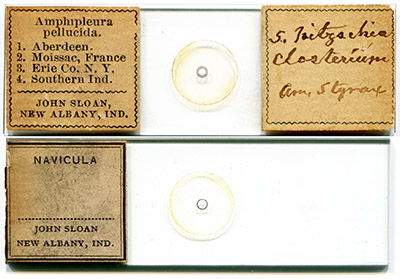 Amphipleura
pellucida.
1. Aberdeen.
2. Moissac, France
3. Erie Co. N. Y.
4. Southern Ind.
JOHN SLOAN,
NEW ALBANY, IND.
5. Nitzschia
closterium
Am. Styrax
NAVICULA
JOHN SLOAN
NEW ALBANY, IND.